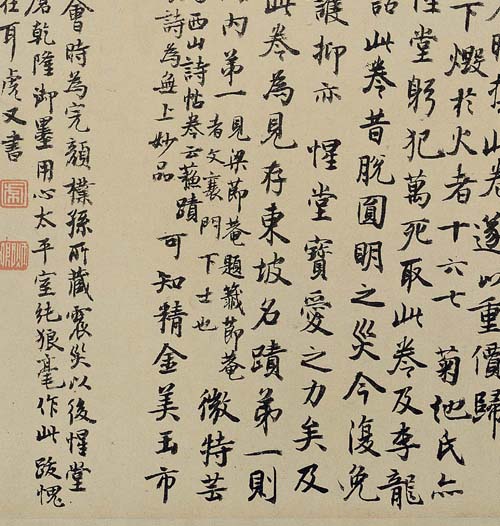 此卷遂以重價歸
下燬於火者十六七菊池氏亦
堂躬犯萬死取此卷及李龍
話此卷昔脫圓明之災今復免
護抑亦惺堂寶愛之力矣及
此卷為見存東坡名蹟第一則
内弟第一見梁節菴題籤節菴
者文襄門下士也微特芸
西山詩帖卷云蘇蹟
詩為無上妙品可知精金美玉市
會時為完顏樸孫所藏震災以後惺堂
乾隆御墨用心太平室純狼毫作此跋愧
在耳虎又書